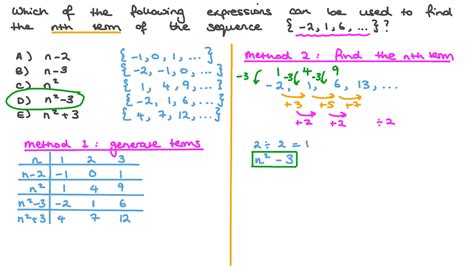 Which of the following expressions can be used to find
the nth term of the sequence { -2, 1, 6, ... } ?
A) n-2 { -1, 0, 1, ... }
B) n-3 { -2, -1, 0, ... }
C) n² { 1, 4, 9, ... }
D) n²-3 { -2, 1, 6, ... }
E) n²+3 { 4, 7, 12, ... }
method 1 : generate terms
n 1 2 3
n-2 -1 0 1
n² 1 4 9
n²-3 -2 1 6
n²+3 4 7 12
method 2 : find the nth term
-3 1 -3 4 -3 9
-2, 1, 6, 13, ...
+3 +5 +7
+2 +2 ÷2
2 ÷ 2 = 1
n² - 3